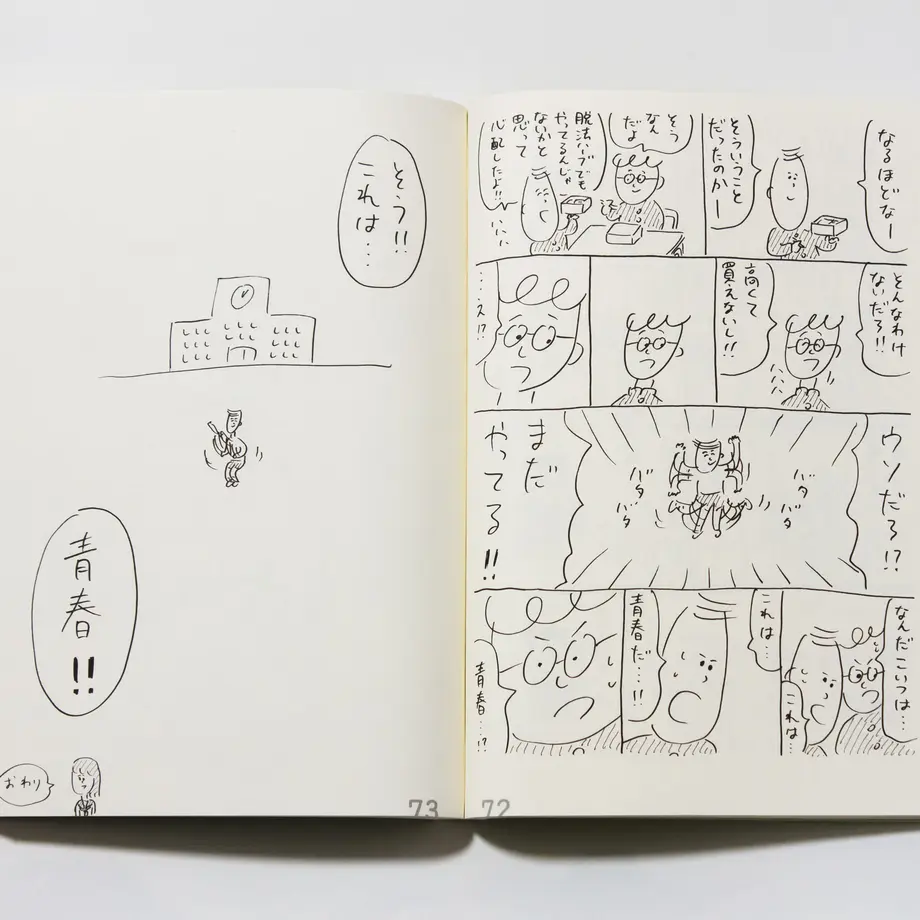 なるほどなー
そういうこと
だったのかー
そう
なん
だよ
脱法ハーブでも
やってるんじゃ
ないかと
思って
心配したよ!!
そんなわけ
ないだろ!!
高くて
買えないし!!
…え!?
ウソだろ!?
バタ
バタ
バタ
バタ
まだ
やってる!!
なんだこいつは…
これは…
これは…
青春だ…!!
青春…!?
72
そう!!
これは…
青春!!
おわり
73